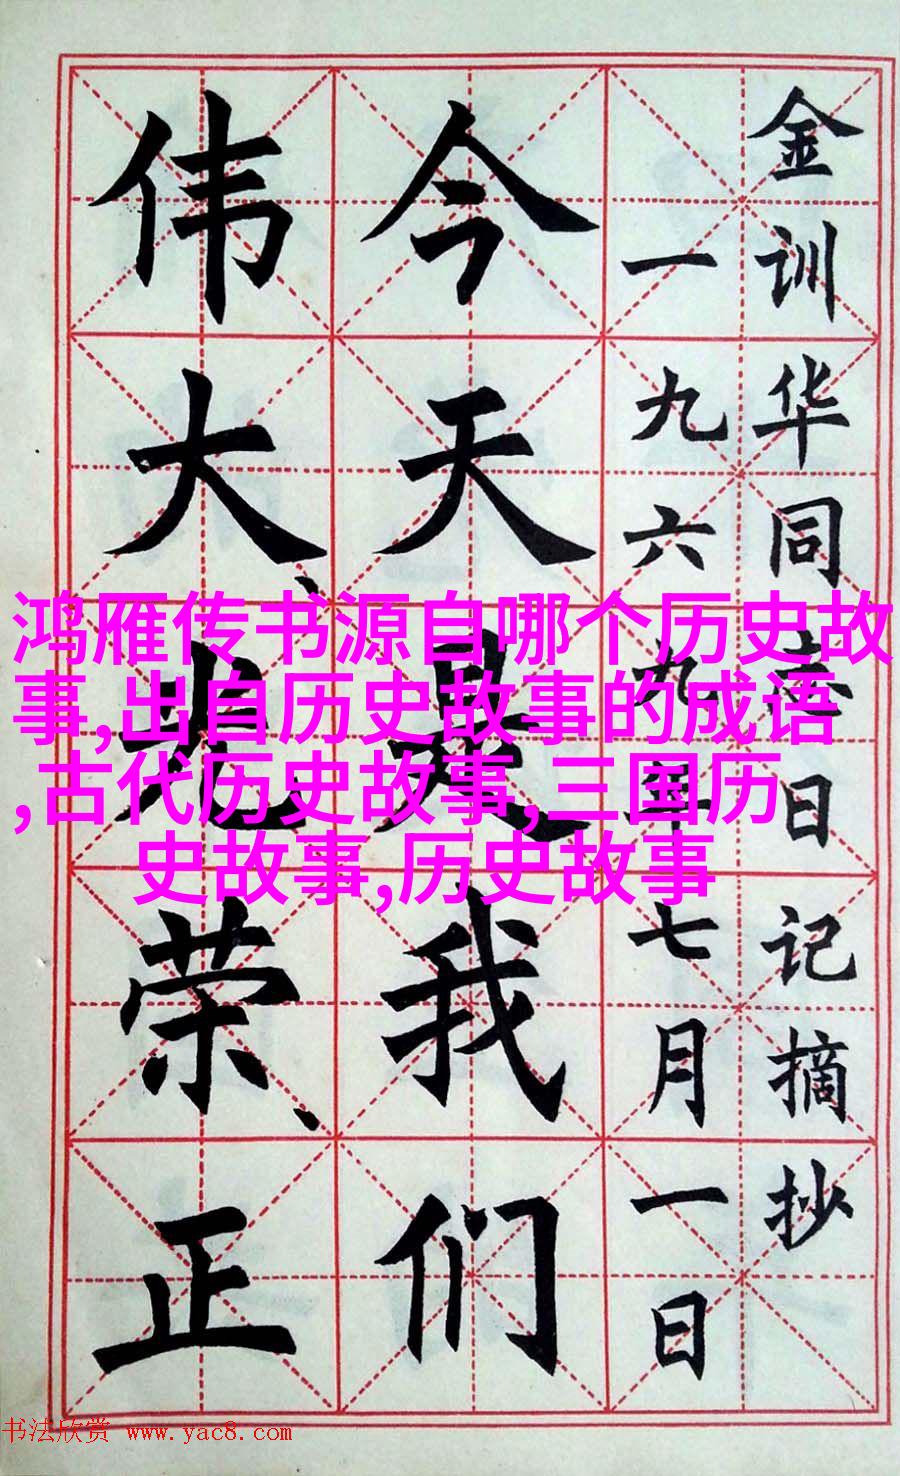 金训华同志日记摘抄
一九六九年七月一日
今天是我们
伟大、光荣、正
鸿雁传书源自哪个历史故
事,出自历史故事的成语
,古代历史故事,三国历
史故事,历史故事
书法欣赏 www.yac8.com